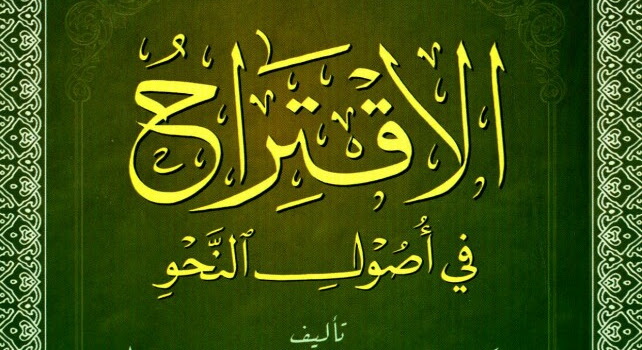 الاقْتِرَاحُ
في أُصُولِ النَّحْوِ
تأليف